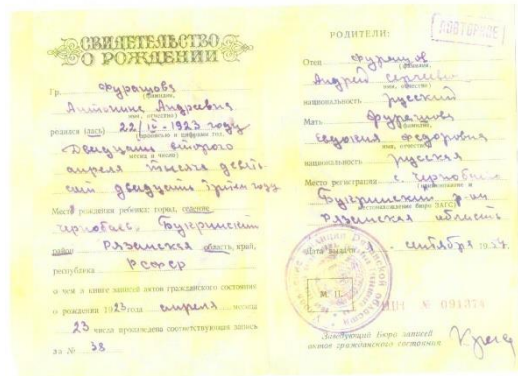 СВИДЕТЕЛЬСТВО
О РОЖДЕНИИ
Гр. Фуряшова
(фамилия,
Антонина Андреевна
имя, отчество)
родился (лась) 22/IV-1923 году
(прописью и цифрами год,
Двадцать второго
месяц и число)
апреля тысяча девять
сот двадцать третьем году
Место рождения ребенка: город, селение
Чернобаево Бугеринский
район Рязанская область, край,
республика РСФСР
о чем в книге записей актов гражданского состояния
о рождении 1923 года апреля месяца
23 числа произведена соответствующая запись
за № 38
ПОВТОРНОЕ
РОДИТЕЛИ:
Отец Фуряшов
(фамилия,
Андрей Сергеевич
имя, отчество)
национальность русский
Мать Фуряшова
(фамилия,
Евдокия Федоровна
имя, отчество)
национальность русская
Место регистрации с. Чернобаево
(наименование и
р-он
местонахождение бюро ЗАГС)
Рязанская область
Дата выдачи сентября
М. П.
№ 091374
Заведующий бюро записей
актов гражданского состояния